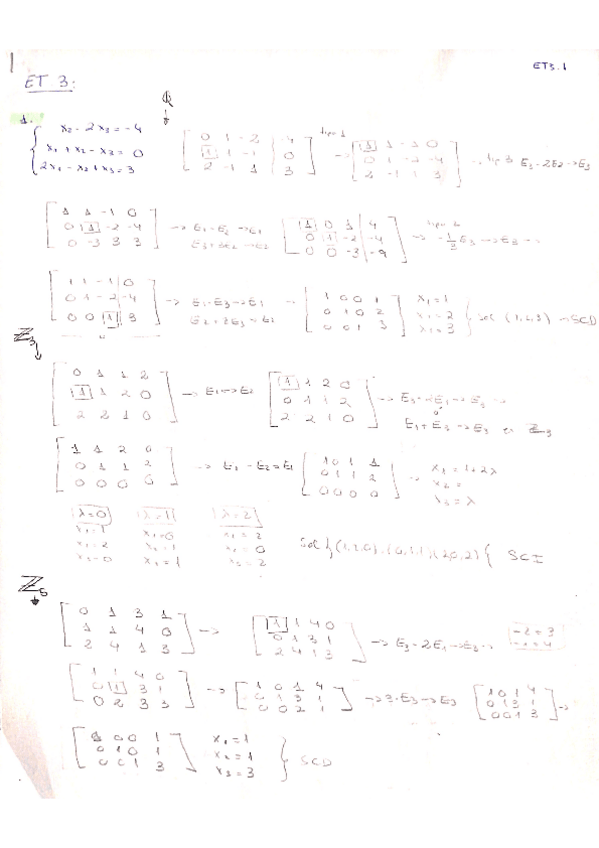 ET3.1
ET 3:
Q
1.
x₂ - 2x₃ = -4
x₁ + x₂ - x₃ = 0
2x₁ - x₂ + x₃ = 3
0 1 -2 | -4
1 1 -1 | 0
2 -1 1 | 3
tipo 1
→
1 1 -1 0
0 1 -2 -4
2 -1 1 3
E₃ - 2E₁ → E₃
1 1 -1 0
0 1 -2 -4
0 -3 3 3
→ E₁ - E₂ → E₁
E₃ + 3E₂ → E₃
1 0 1 4
0 1 -2 -4
0 0 -3 -9
→ -1/3 E₃ → E₃
1 1 -1 0
0 1 -2 -4
0 0 1 3
→ E₁ - E₃ → E₁
E₂ + 2E₃ → E₂
1 0 0 1
0 1 0 2
0 0 1 3
x₁ = 1
x₂ = 2
x₃ = 3
Sol (1,2,3) → SCD
Z₃
0 1 1 2
1 1 2 0
2 2 1 0
→ E₁ ↔ E₂
1 1 2 0
0 1 1 2
2 2 1 0
→ E₃ - 2E₁ → E₃
E₁ + E₃ → E₃ en Z₃
1 1 2 0
0 1 1 2
0 0 0 0
→ E₁ - E₂ = E₁
1 0 1 1
0 1 1 2
0 0 0 0
x₁ = 1 + 2λ
x₂ =
x₃ = λ
λ=0
λ=1
λ=2
x₁ = 1
x₂ = 2
x₃ = 0
x₁ = 0
x₂ = 1
x₃ = 1
x₁ = 2
x₂ = 0
x₃ = 2
Sol {(1,2,0), (0,1,1), (2,0,2)} SCI
Z₅
0 1 3 1
1 1 4 0
2 4 1 3
→
1 1 4 0
0 1 3 1
2 4 1 3
→ E₃ - 2E₁ → E₃
-2 = 3
1 1 4 0
0 1 3 1
0 2 3 3
→
1 0 1 4
0 1 3 1
0 0 2 1
→ 3·E₃ → E₃
1 0 1 4
0 1 3 1
0 0 1 3
→
1 0 0 1
0 1 0 1
0 0 1 3
x₁ = 1
x₂ = 1
x₃ = 3
SCD